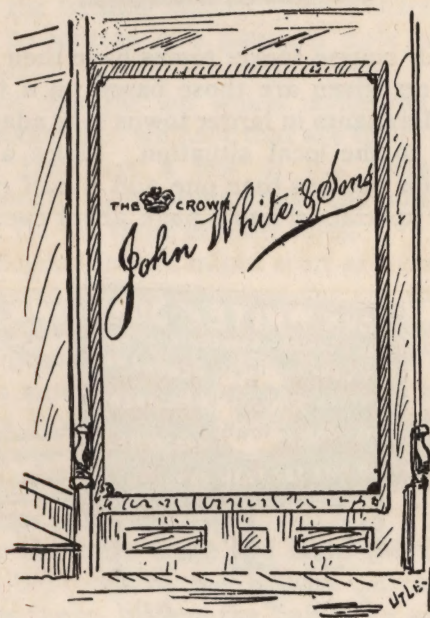 THE CROWN
John White & Sons
UTLEY